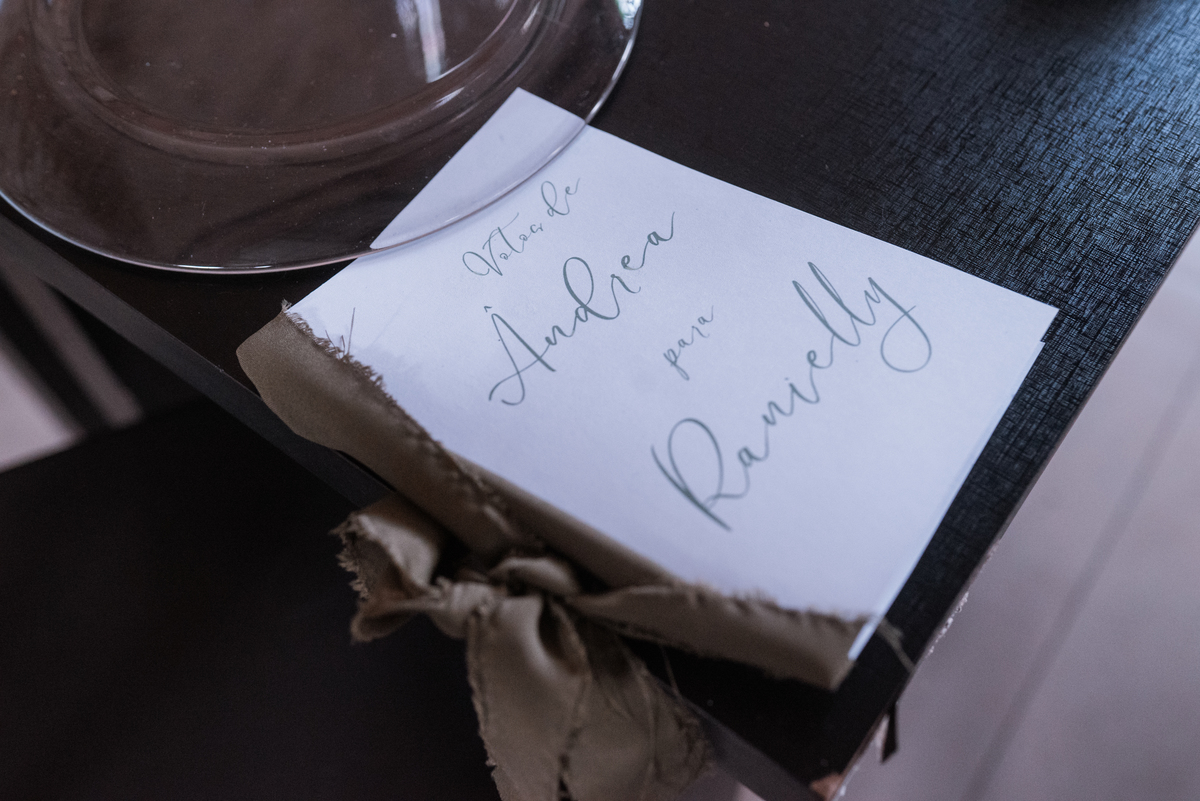 Votos de
Ândrea
para
Ranielly